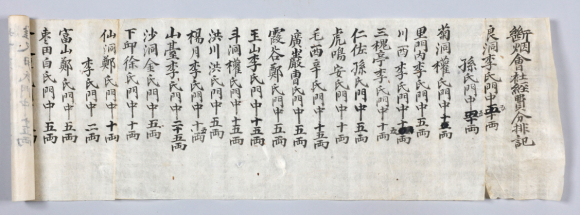 斷烟會社經費分排記
良洞李氏門中五十両
孫氏門中
菊洞權氏門中
里門內李氏門中五両
川西李氏門中十
三槐亭李氏門中十両
仁佐孫氏門中五両
虎鳴安氏門中十両
毛西辛氏門中十五両
廣岩曺氏門中五両
霞谷鄭氏門中十五両
玉山李氏門中十五両
斗洞權氏門中十五両
洪川洪氏門中五両
楊月李氏門中十両
山臺李氏門中五両
沙洞金氏門中五両
下邱徐氏門中五両
李氏門中二両
仙洞鄭氏門中十両
富山鄭氏門中五両
棗田白氏門中五両
氏門中十五両